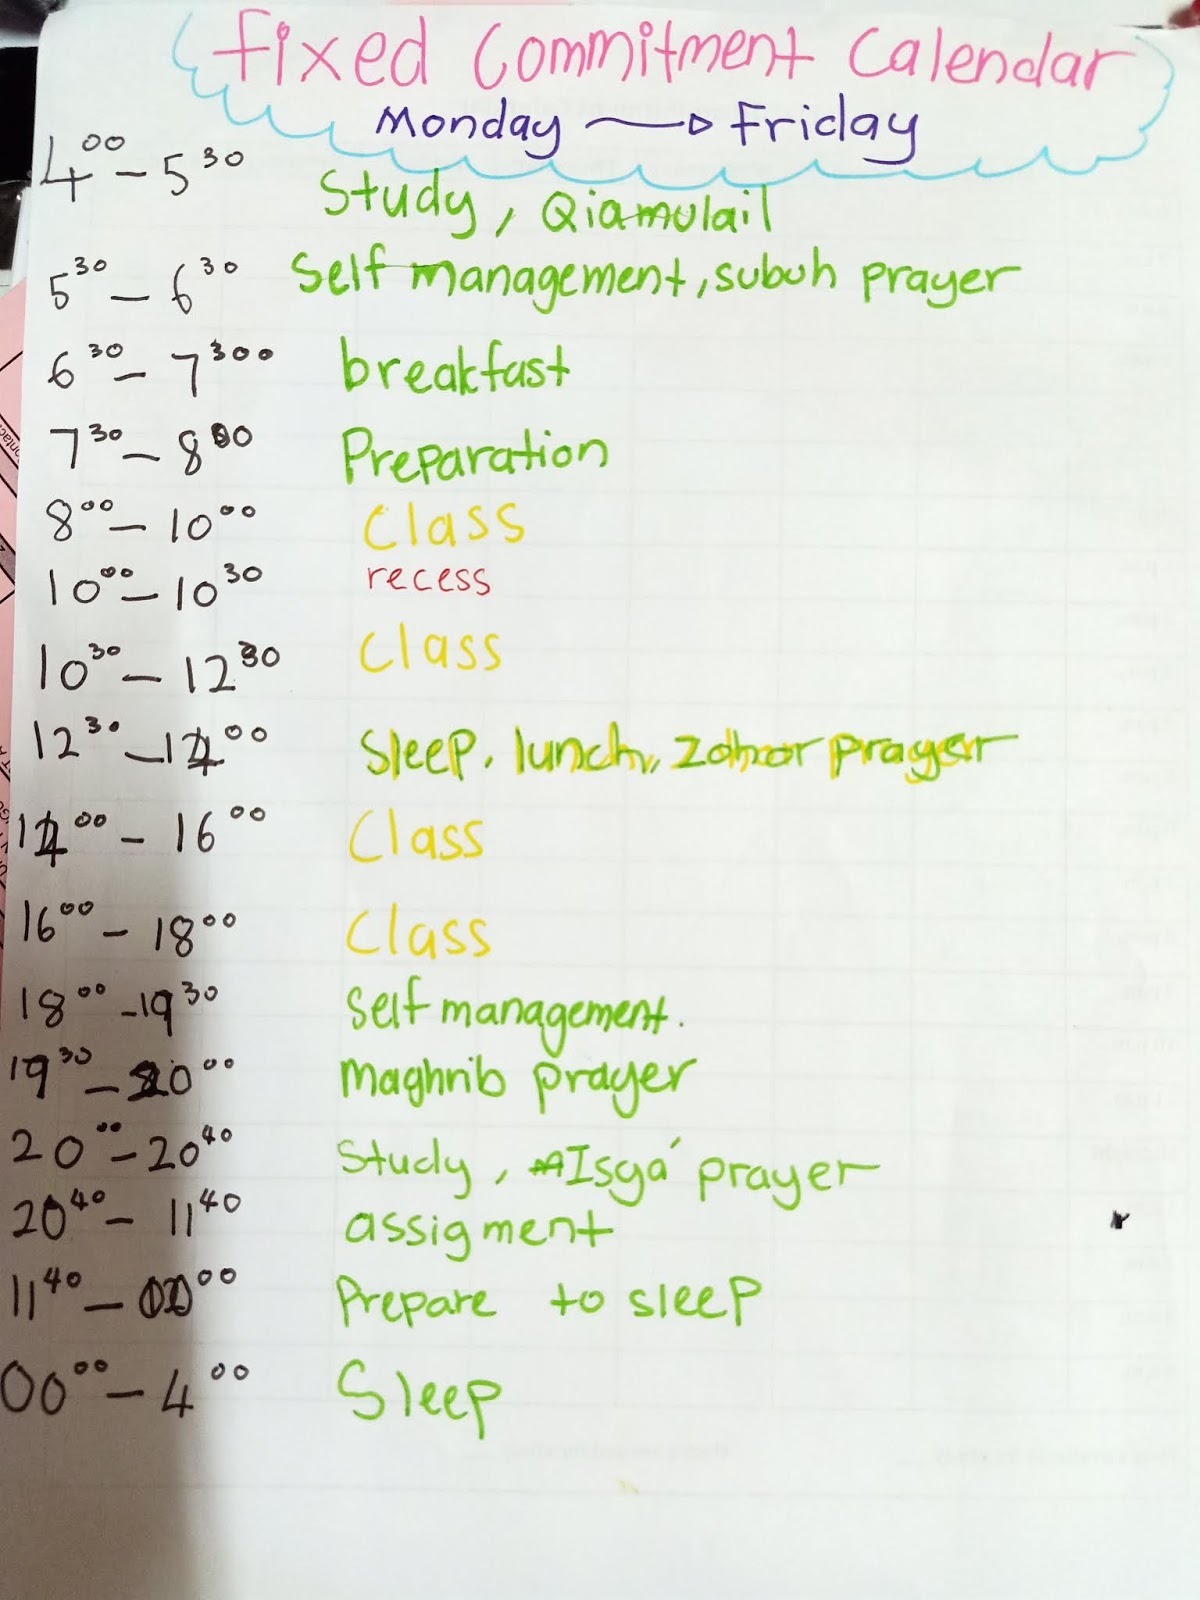 Fixed Commitment Calendar
Monday → Friday
4⁰⁰ – 5³⁰ Study, Qiamulail
5³⁰ – 6³⁰ Self management, subuh prayer
6³⁰ – 7³⁰⁰ breakfast
7³⁰ – 8⁰⁰ Preparation
8⁰⁰ – 10⁰⁰ Class
10⁰⁰ – 10³⁰ recess
10³⁰ – 12³⁰ Class
12³⁰ – 14⁰⁰ Sleep, lunch, Zohor prayer
14⁰⁰ – 16⁰⁰ Class
16⁰⁰ – 18⁰⁰ Class
18⁰⁰ – 19³⁰ Self management.
19³⁰ – 20⁰⁰ Maghrib prayer
20⁰⁰ – 20⁴⁰ Study, Isya' prayer
20⁴⁰ – 11⁴⁰ assigment
11⁴⁰ – 00⁰⁰ Prepare to sleep
00⁰⁰ – 4⁰⁰ Sleep